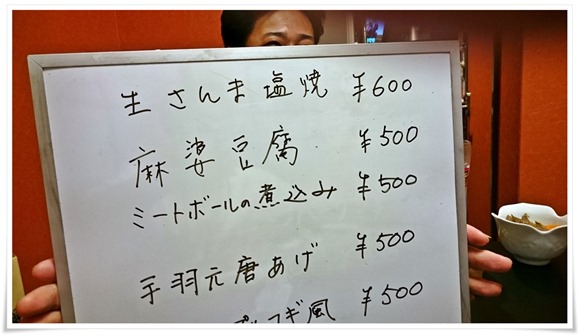 生さんま塩焼 ¥600
麻婆豆腐 ¥500
ミートボールの煮込み ¥500
手羽元唐あげ ¥500
プルコギ風 ¥500